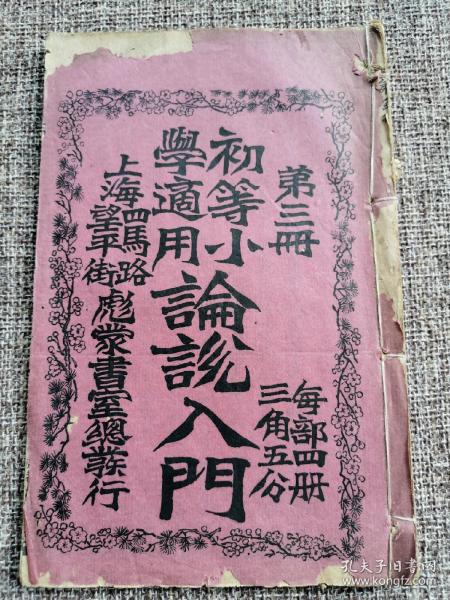 第三冊
每部四冊
三角五分
初等小
學適用
論說入門
上海四馬路
望平街
彪蒙書室總發行
孔夫子旧书网
www.kongfz.com